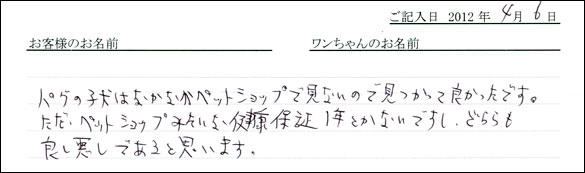 ご記入日 2012 年 4月 6 日
お客様のお名前 ワンちゃんのお名前
パグの子犬はなかなかペットショップで見ないので見つかって良かったです。
ただ、ペットショップみたいな健康保証1年とかないですし、どちらも
良し悪しであると思います。